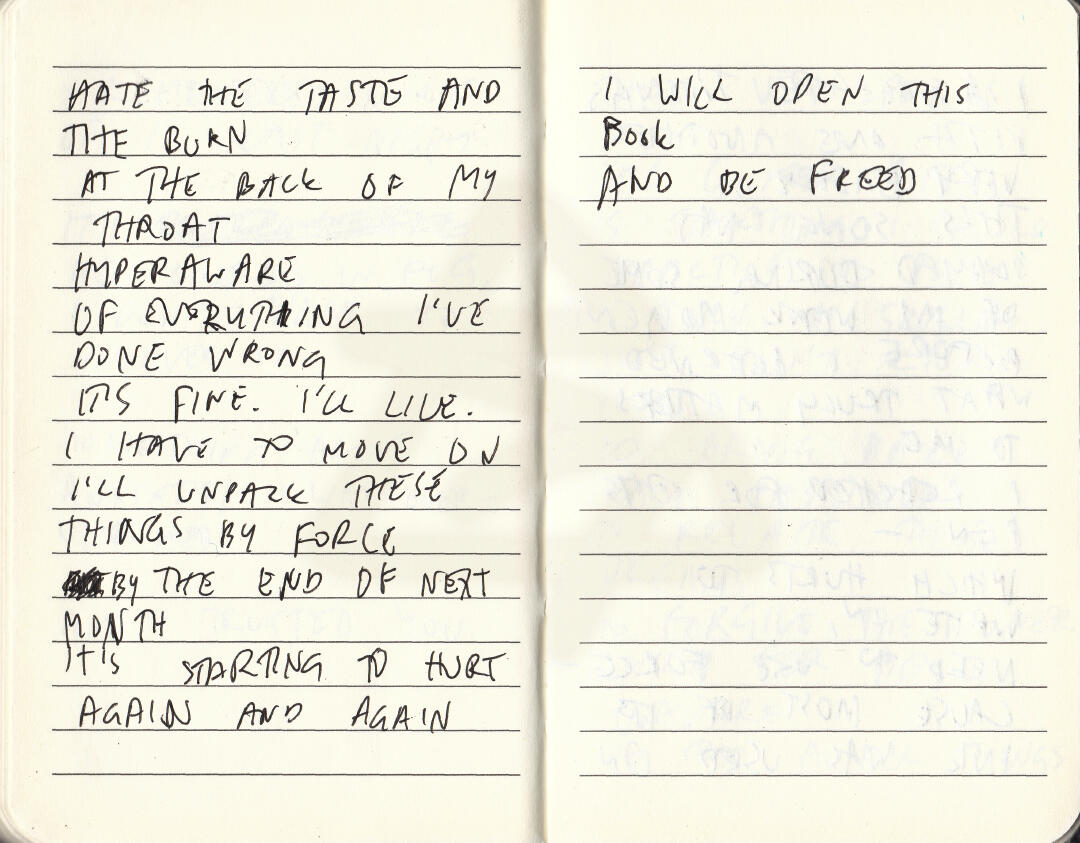 HATE THE TASTE AND
THE BURN
AT THE BACK OF MY
THROAT
HYPERAWARE
OF EVERYTHING I'VE
DONE WRONG
ITS FINE. I'LL LIVE.
I HAVE TO MOVE ON
I'LL UNPACK THESE
THINGS BY FORCE
BY THE END OF NEXT
MONTH
IT'S STARTING TO HURT
AGAIN AND AGAIN
I WILL OPEN THIS
BOOK
AND BE FREED